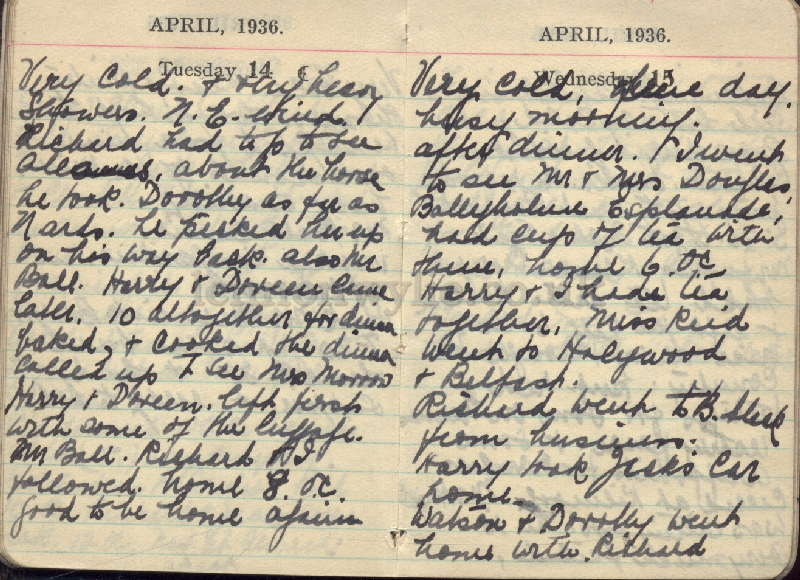 APRIL, 1936.
Tuesday 14
Very Cold. & very heavy
Showers. N. E. wind.
Richard had to go to see
about the horse
he took. Dorothy as far as
Nards. he picked her up
on his way back. also Mr
Ball. Harry & Doreen came
later. 10 altogether for dinner
baked, & cooked the dinner
called up to see Mrs Morrow
Harry & Doreen. left first
with some of the luggage.
Mr Ball. Richard & I
followed. home 8. oc.
good to be home again
APRIL, 1936.
Wednesday 15
Very cold, fine day.
busy morning.
after dinner. I went
to see Mr & Mrs Douglas,
Ballyholme Esplanade,
had cup of tea with
them, home 6. oc
Harry & I had tea
together, Miss Reid
went to Holywood
& Belfast.
Richard went to B.
from business.
Harry took Jack's Car
home
Watson & Dorothy went
home with Richard